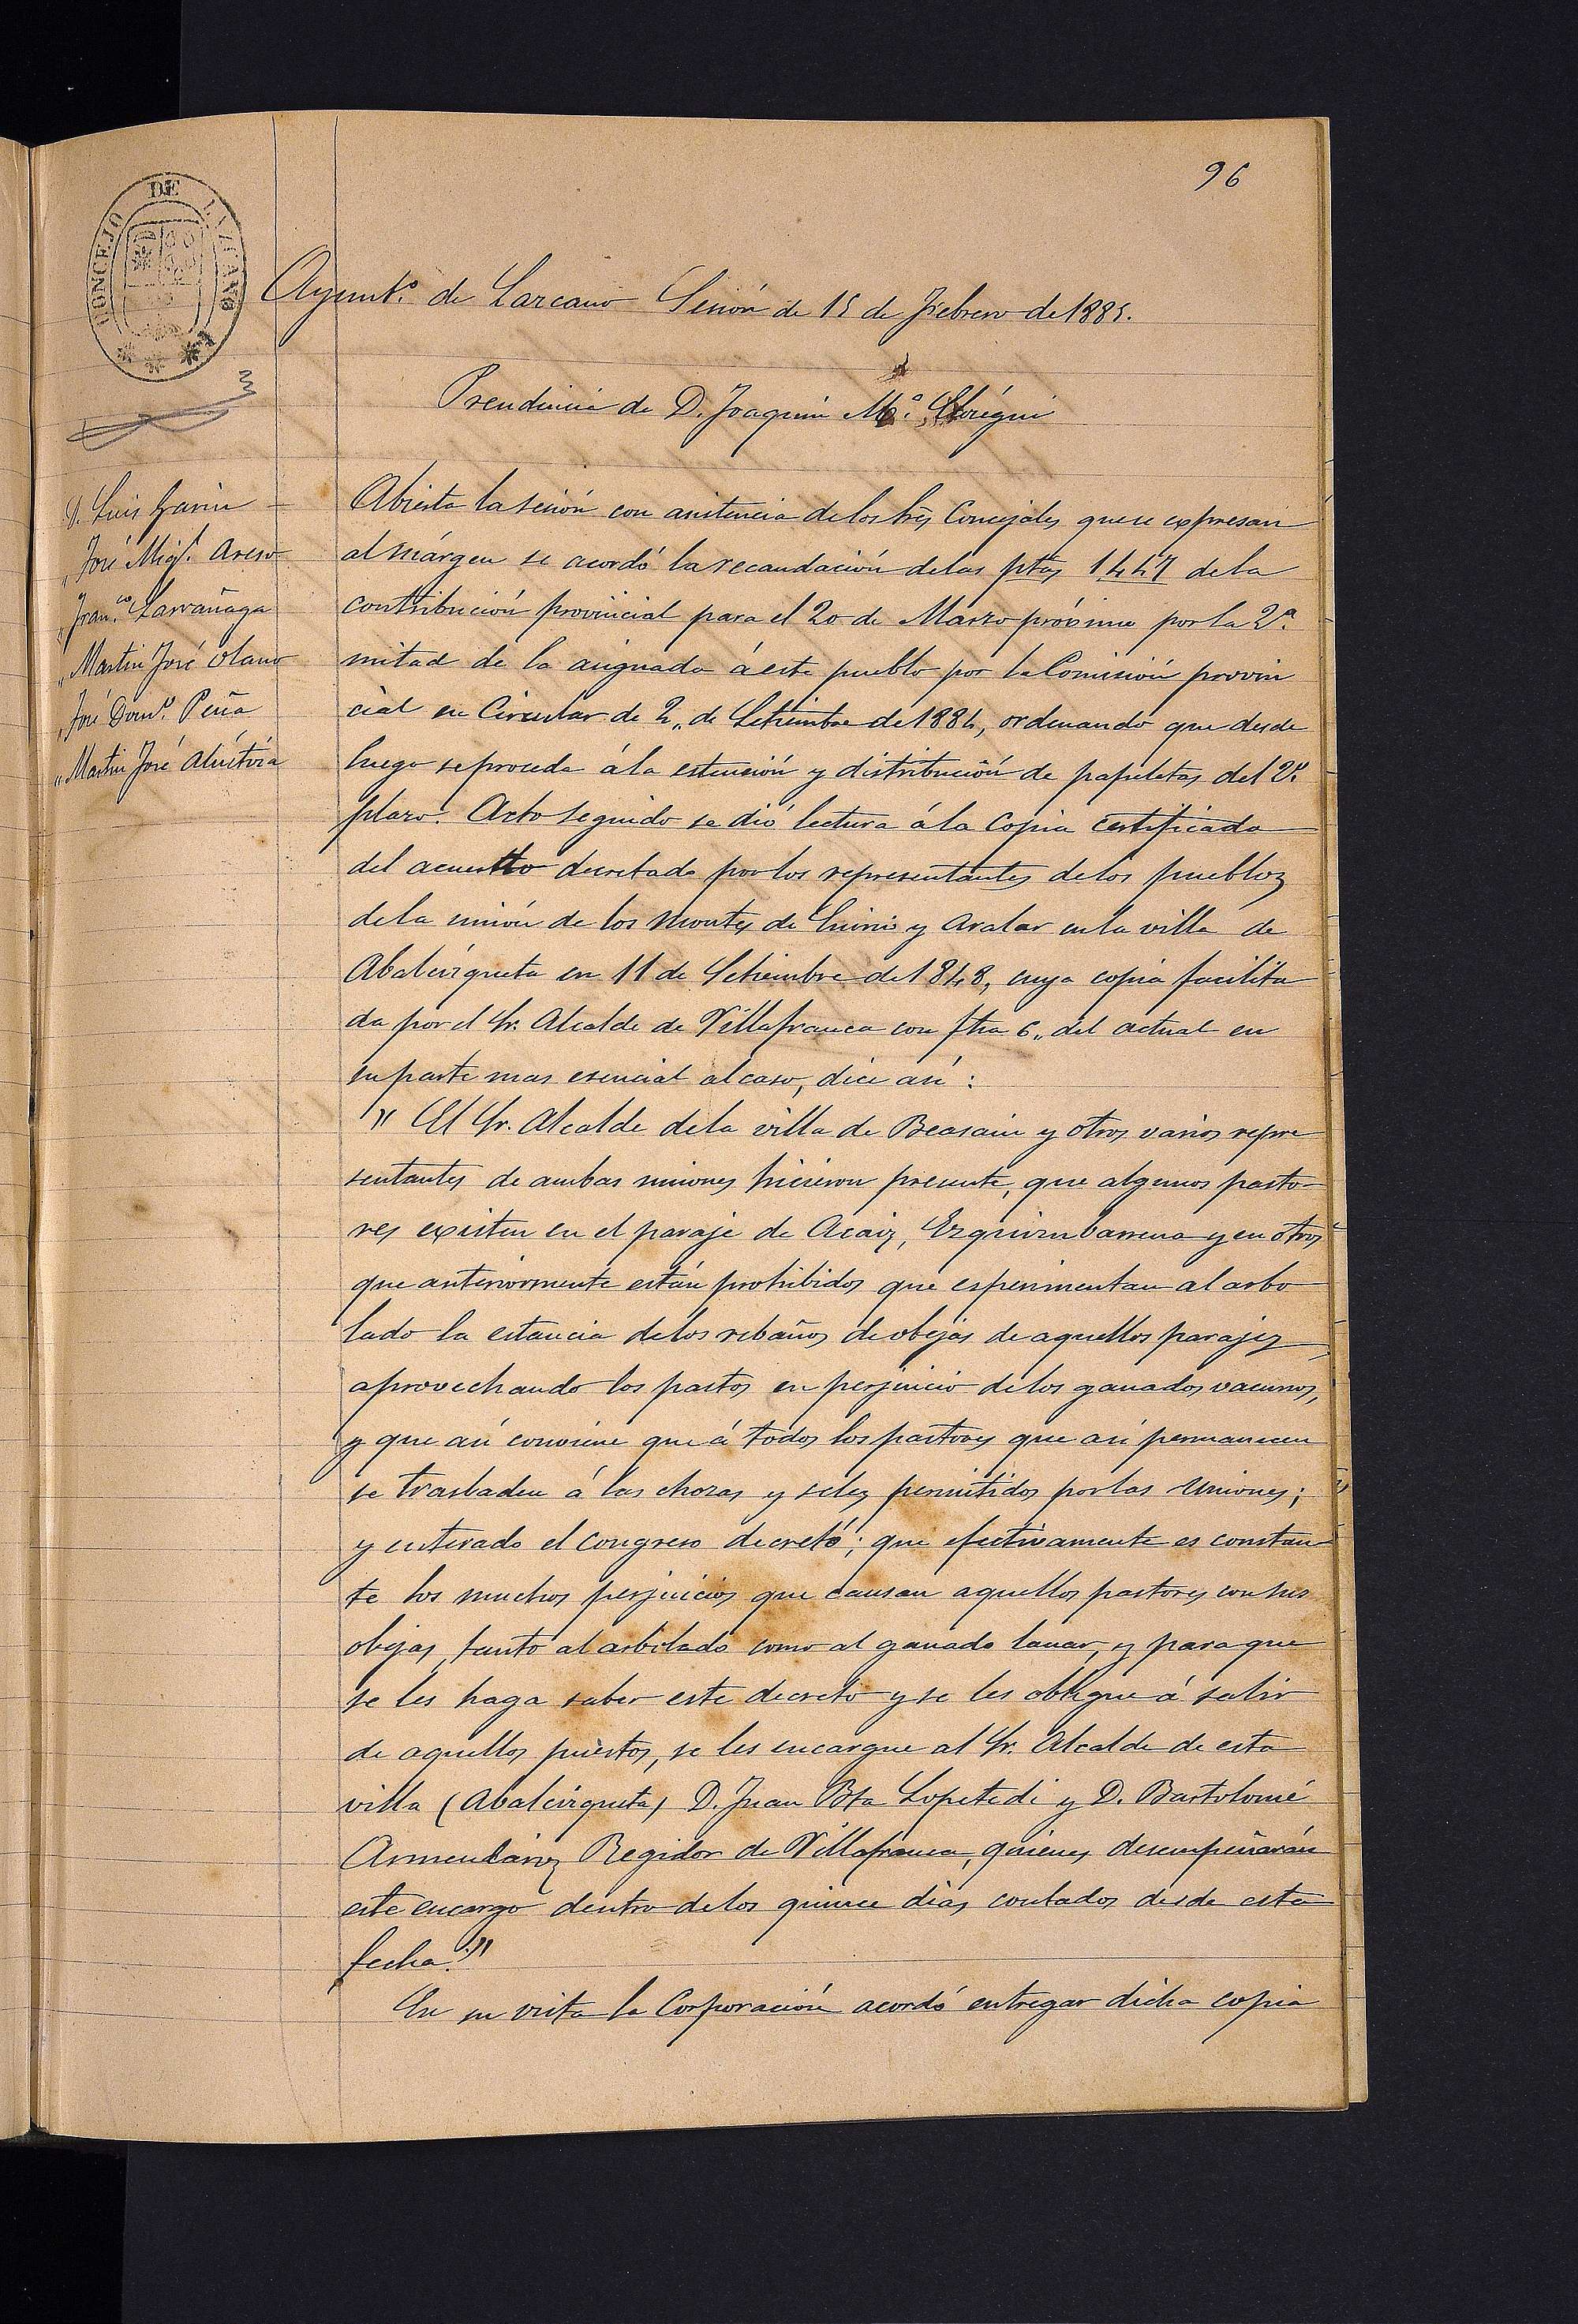 96
CONCEJO DE LAZCANO
Ayuntº. de Lazcano Sesión de 15 de Febrero de 1885.
Presidencia de D. Joaquin Mª.
D. Luis Garin
" José Migl. Areso
" Franco. Larrañaga
" Martin José Olano
" José Domo. Peña
" Martin José
Abierta la sesión con asistencia de los Sres Concejales que se expresan
al márgen se acordó la recaudación de las ptas 1447 de la
contribución provincial para el 20 de Marzo próximo por la 2ª.
mitad de la asignada á este pueblo por la Comisión provin
cial en Circular de 2,, de Setiembre de 1884, ordenando que desde
luego se proceda á la estensión y distribución de papeletas del 2º.
plazo. Acto seguido se dió lectura á la Copia certificada
del acuerdo decretado por los representantes de los pueblos
de la unión de los montes de Enirio y Aralar en la villa de
Abalcisqueta en 11 de Setiembre de 1848, cuya copia facilita
da por el Sr. Alcalde de Villafranca con fha 6,, del actual en
su parte mas esencial al caso, dice así:
" El Sr. Alcalde de la villa de Beasain y otros varios repre
sentantes de ambas uniones hicieron presente, que algunos pasto-
res existen en el paraje de Acaiz, y en otros
que anteriormente están prohibidos que esperimentan al arbo
lado la estancia de los rebaños de obejas de aquellos parajes,
aprovechando los pastos en perjuicio de los ganados vacunos,
y que así conviene que á todos los pastores que así permanecen
se trasladen á las chozas y seles permitidos por las Uniones;
y enterado el congreso decretó; que efectivamente es constan
te los muchos perjuicios que causan aquellos pastores con sus
obejas, tanto al arbolado como al ganado lanar, y para que
se les haga saber este decreto y se les obligue á salir
de aquellos puestos, se les encargue al Sr. Alcalde de esta
villa (Abalcisqueta) D. Juan Bta Lopetedi y D. Bartolomé
Armendariz Regidor de Villafranca, quienes desempeñarán
este encargo dentro de los quince días contados desde esta
fecha."
En su vista la Corporación acordó entregar dicha copia